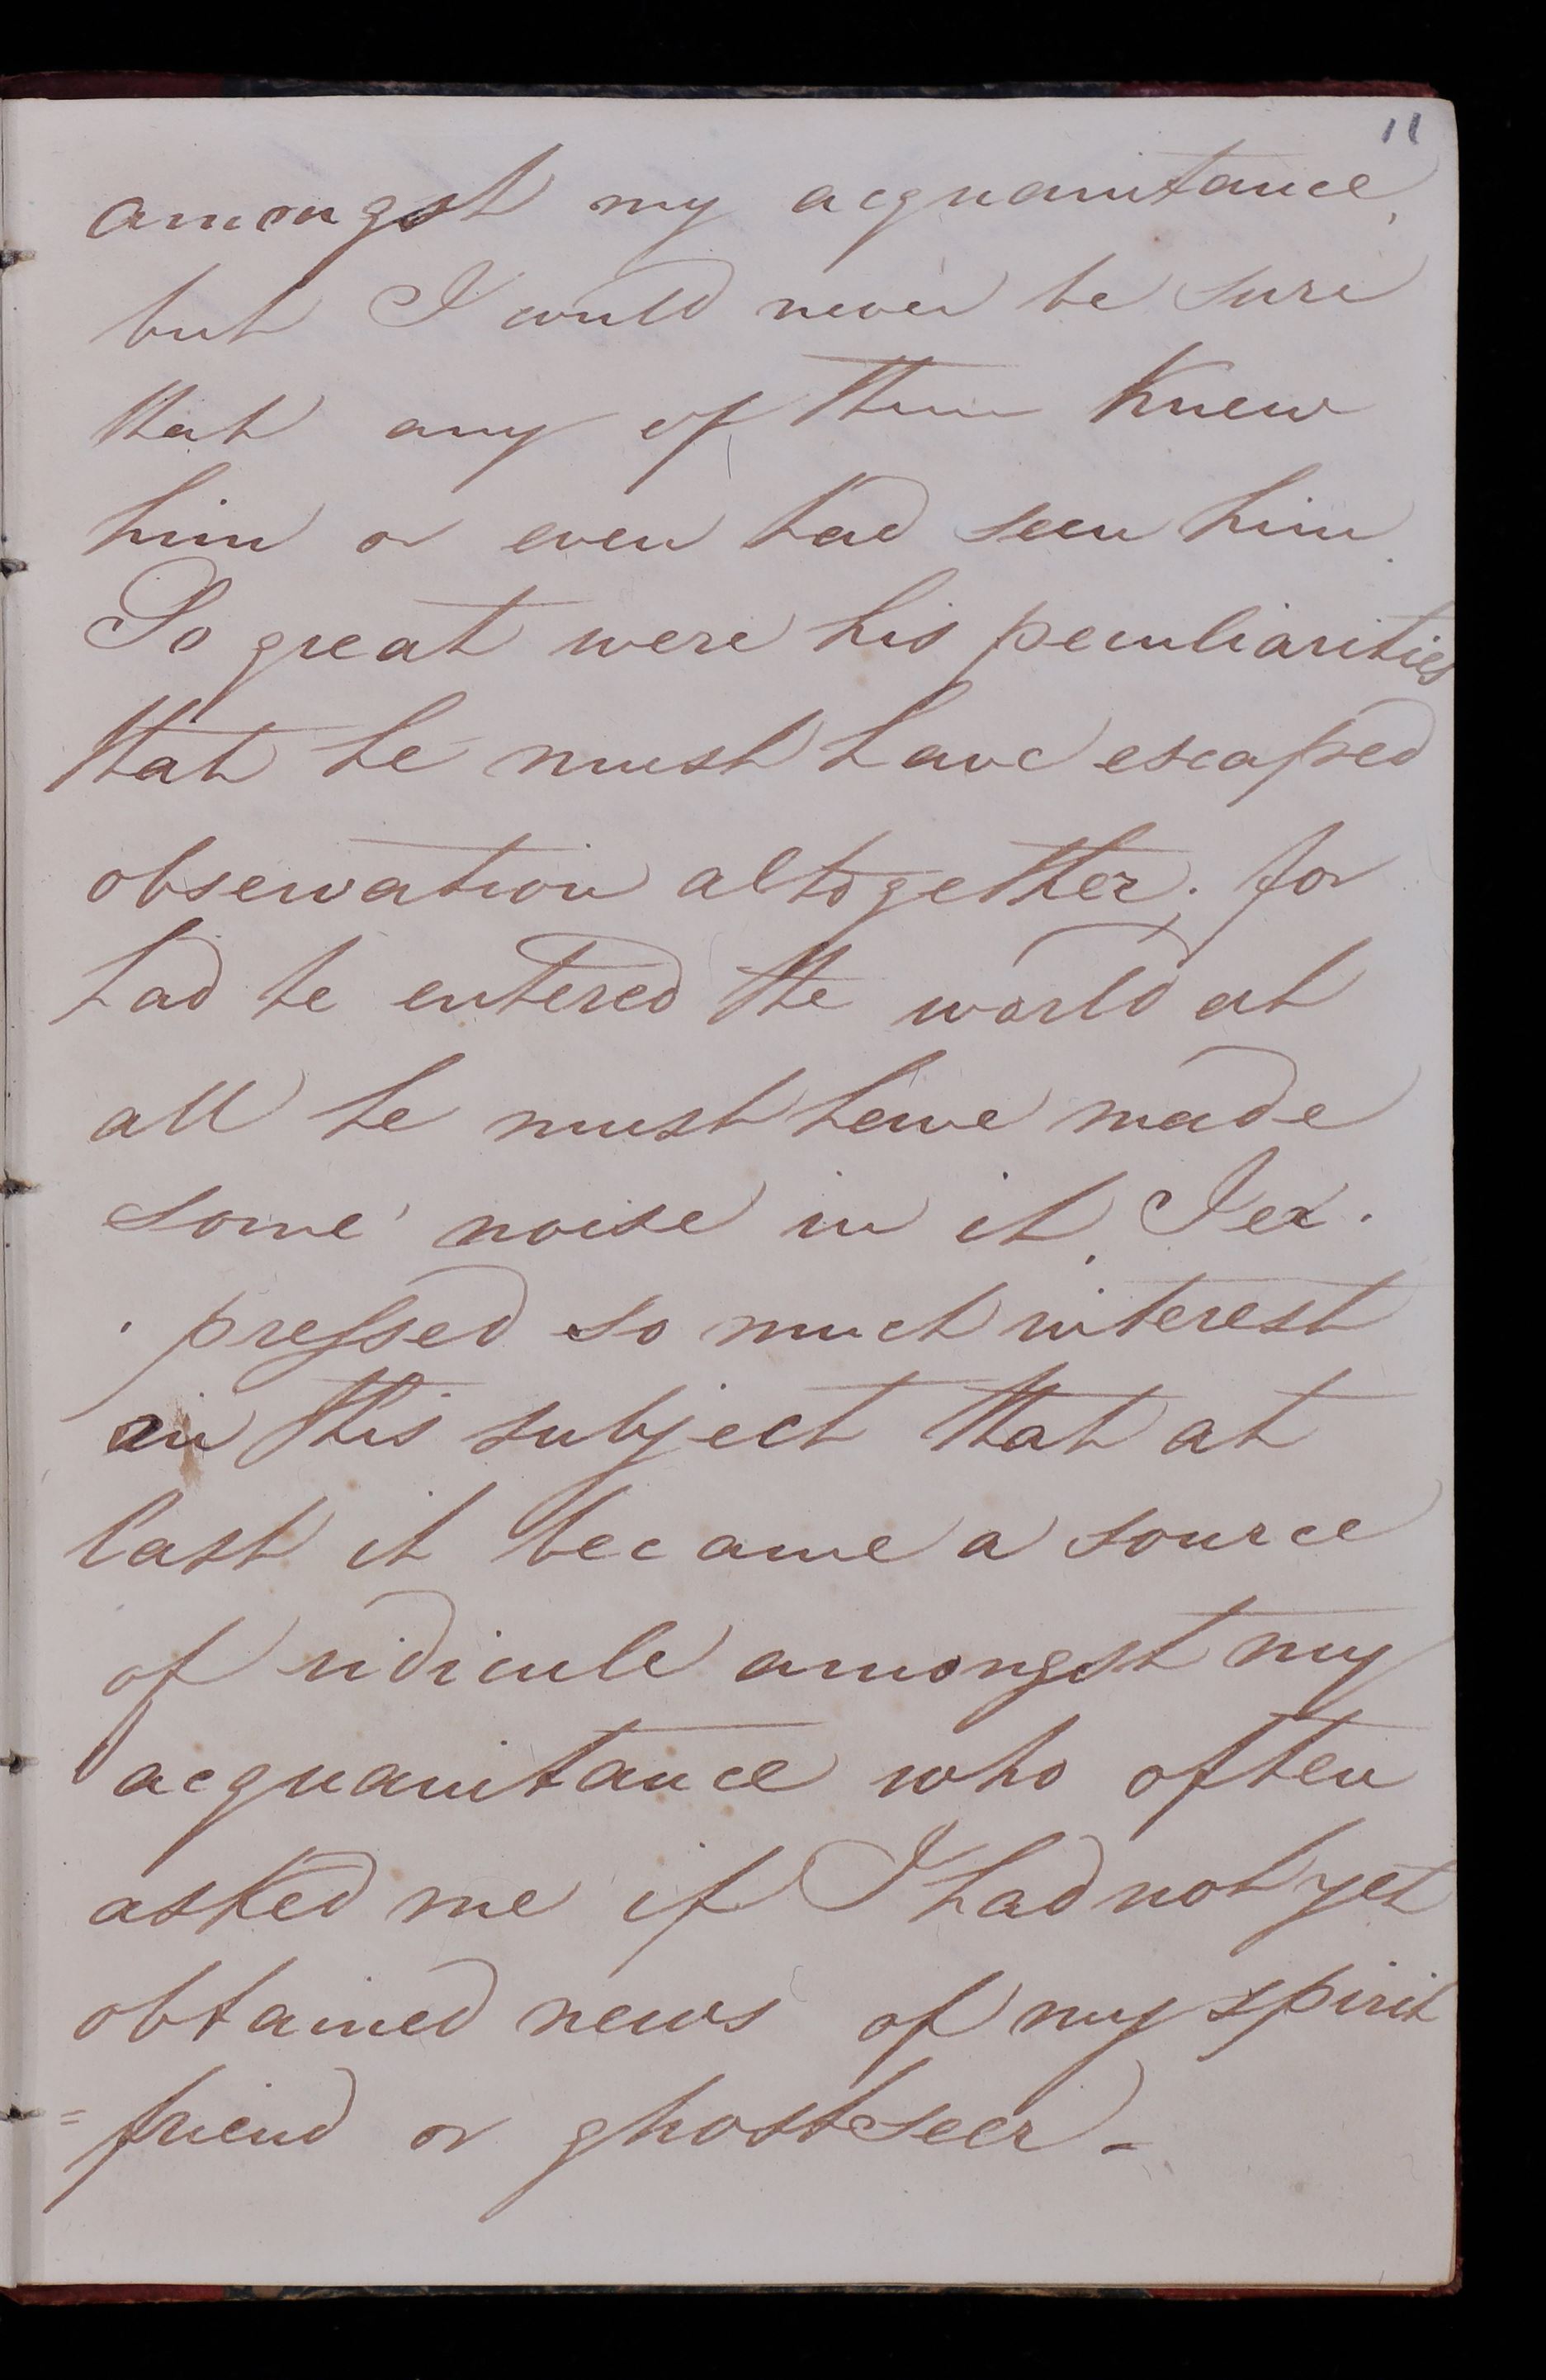 11
amongst my acquaintance,
but I could never be sure
that any of them knew
him or even had seen him.
So great were his peculiarities
that he must have escaped
observation altogether; for
had he entered the world at
all he must have made
some noise in it. I ex-
-pressed so much interest
in this subject that at
last it became a source
of ridicule amongst my
acquaintance who often
asked me if I had not yet
obtained news of my spirit
=friend or ghostseer -